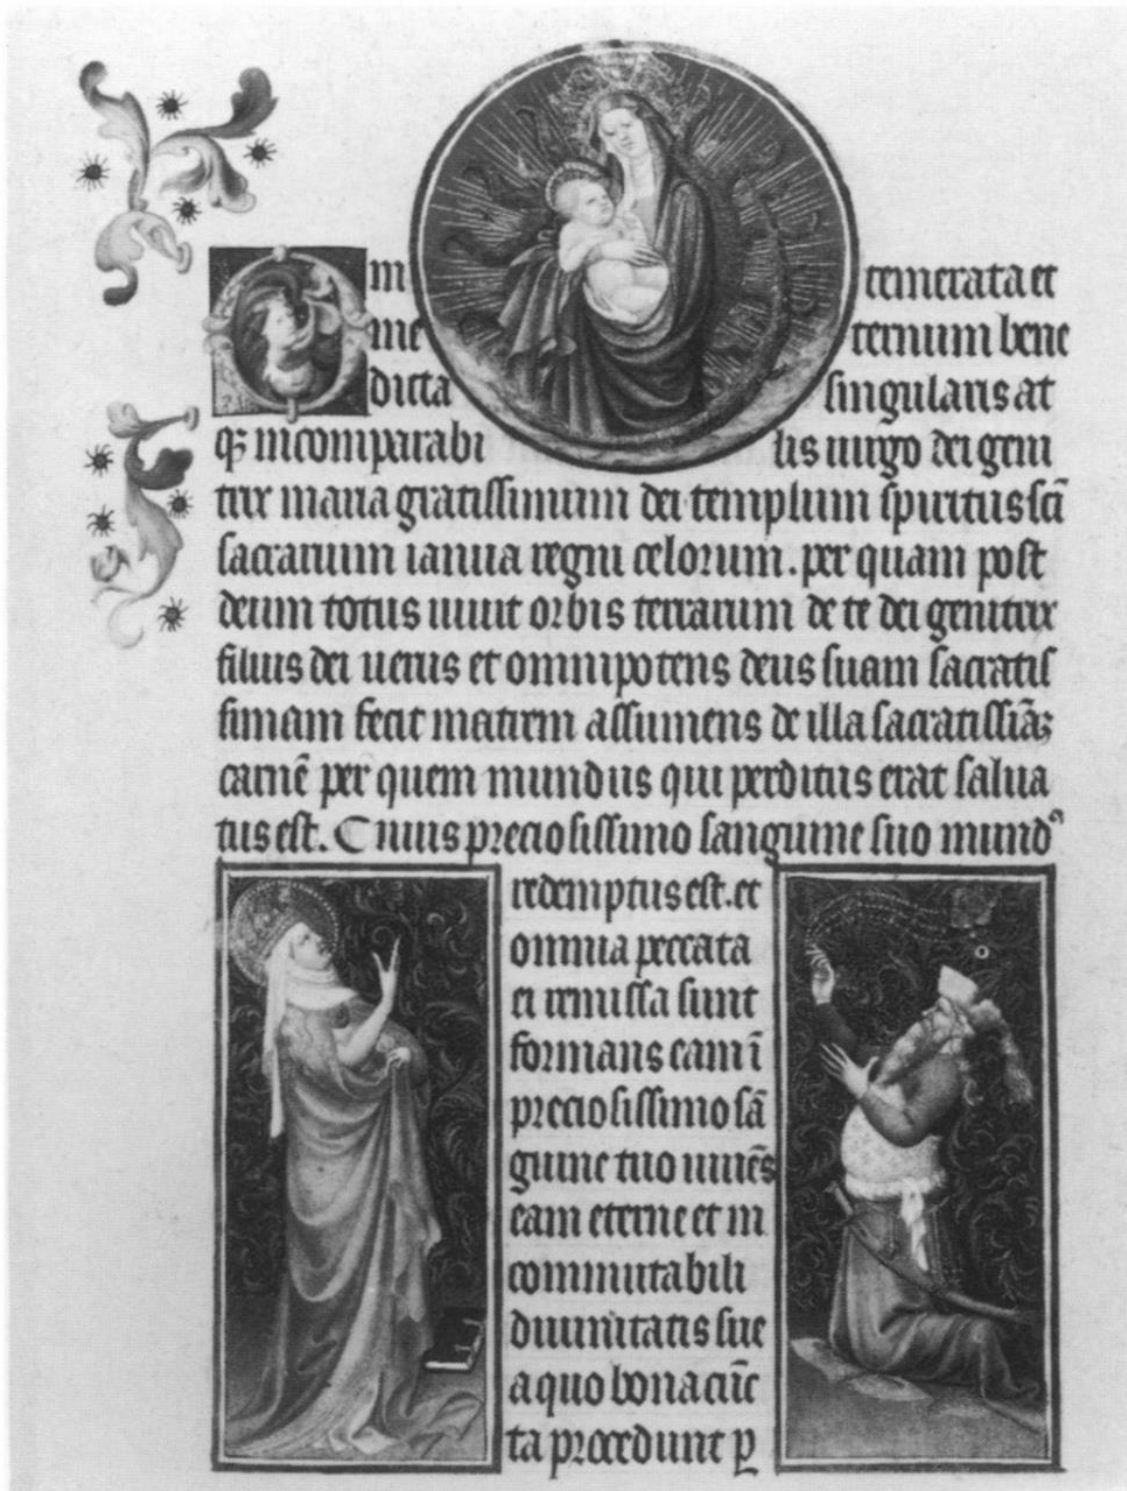 O m temerata et
me ternum bene
dicta singularis at
qꝫ incomparabi lis uirgo dei geni
trix maria gratissimum dei templum spiritus scī
sacrarium ianua regni celorum. per quam post
deum totus uiuit orbis terrarum de te dei genitrix
filius dei uerus et omnipotens deus suam sacratis
simam fecit matrem assumens de illa sacratissiāꝫ
carnē per quem mundus qui perditus erat salua
tus est. Cuius preciosissimo sanguine suo mundꝰ
redemptus est. et
omnia peccata
ei remissa sunt
formans eam ī
preciosissimo sā
guine tuo uniēs
eam eterne et in
commutabili
diuinitatis sue
a quo bona cūc
ta procedunt ꝑ